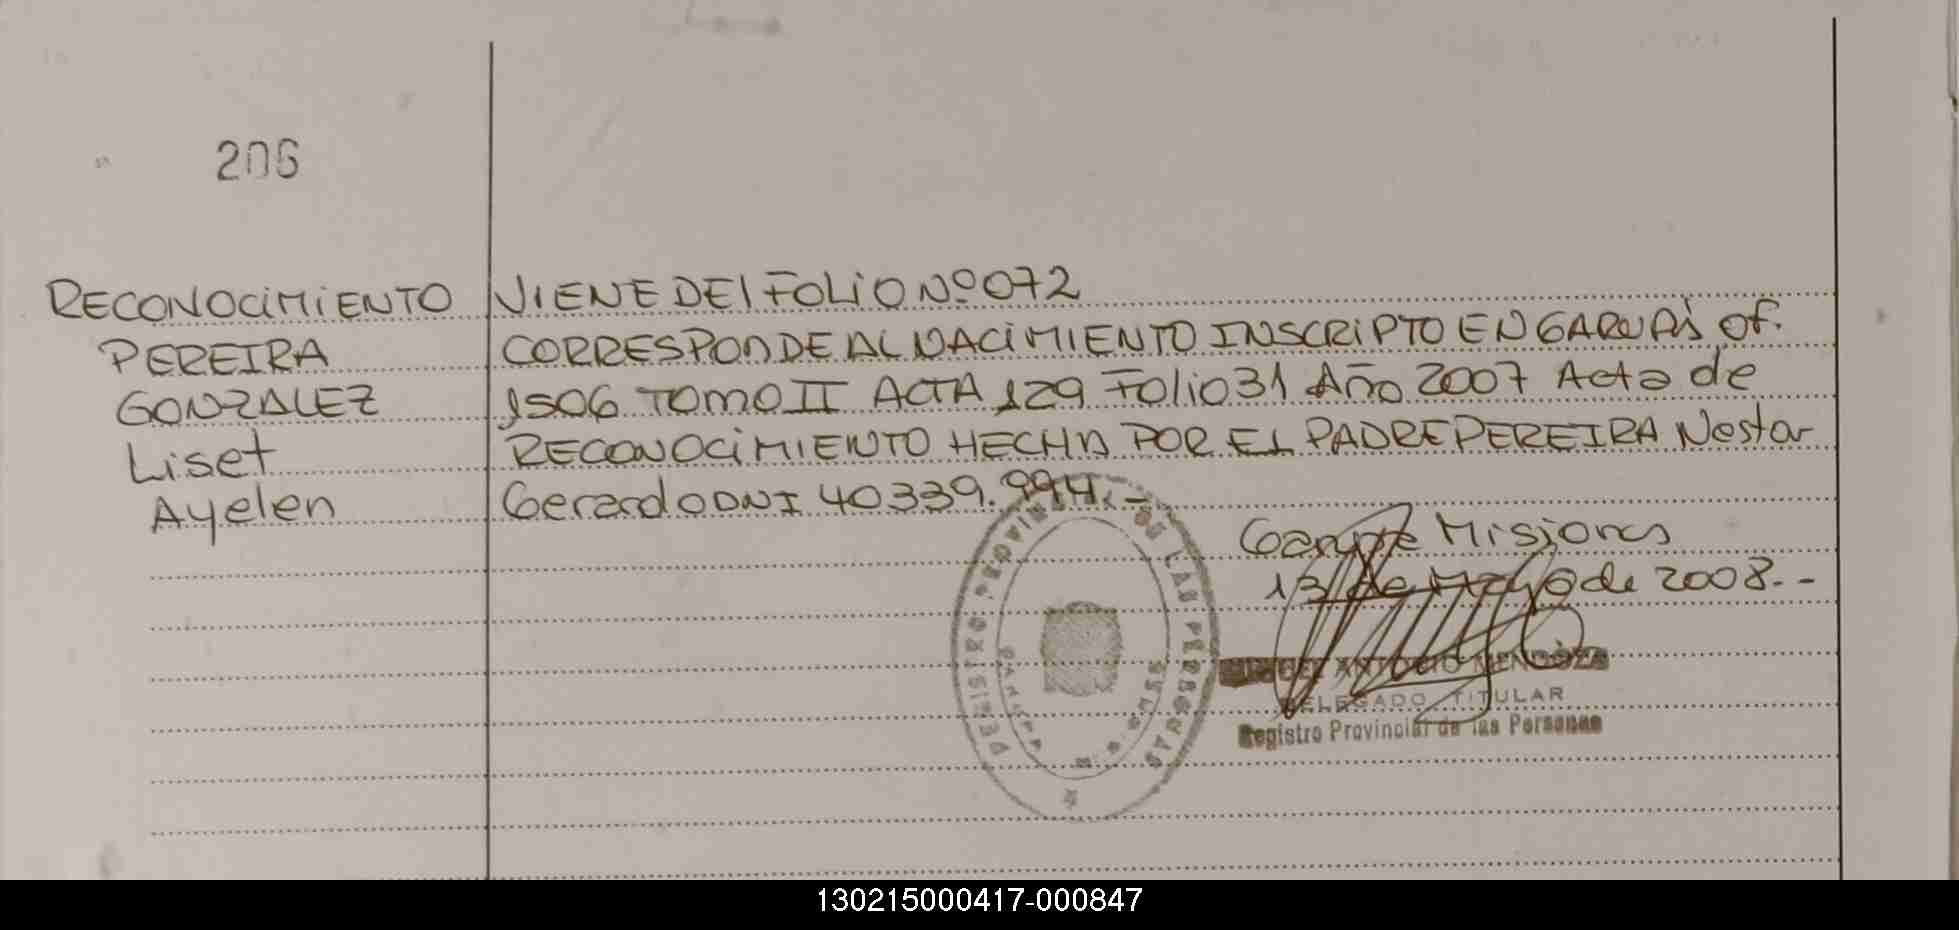 206
RECONOCIMIENTO
PEREIRA
GONZALEZ
Liset
Ayelen
VIENE DEl FOLIO Nº 072
CORRESPONDE AL NACIMIENTO INSCRIPTO EN GARUPÁ of.
1506 TOMO II ACTA 129 Folio 31 Año 2007 Acta de
RECONOCIMIENTO HECHA POR EL PADRE PEREIRA Nestor
Gerardo DNI 40339.994.-
Garupá Misiones
13 de Mayo de 2008.-
REGISTRO PROVINCIAL DE LAS PERSONAS
GARUPA
ANTONIO MENDOZA
DELEGADO TITULAR
Registro Provincial de las Personas
130215000417-000847